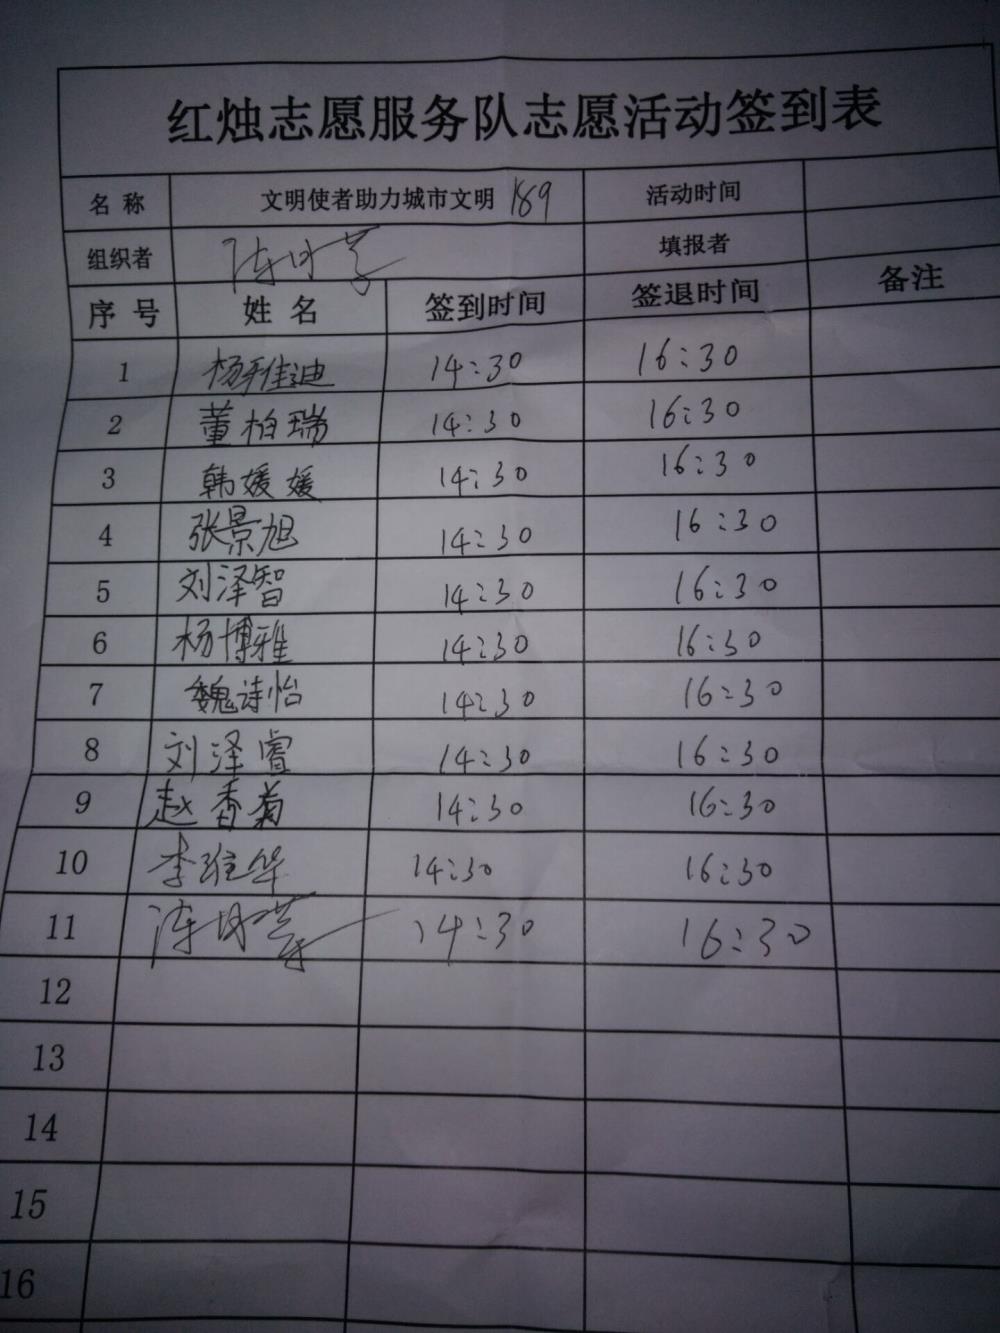 红烛志愿服务队志愿活动签到表
名 称 文明使者助力城市文明 189 活动时间
组织者 填报者
序 号 姓 名 签到时间 签退时间 备注
1 杨雅迪 14:30 16:30
2 董柏瑞 14:30 16:30
3 韩媛媛 14:30 16:30
4 张景旭 14:30 16:30
5 刘泽智 14:30 16:30
6 杨博雅 14:30 16:30
7 魏诗怡 14:30 16:30
8 刘泽睿 14:30 16:30
9 赵香菊 14:30 16:30
10 李维华 14:30 16:30
11 14:30 16:30
12
13
14
15
16